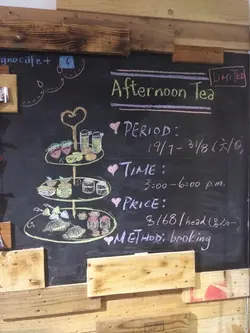 gnocafe +
LIMITED
Afternoon Tea
PERIOD:
19/7 - 31/8 (六/日)
TIME:
3:00-6:00 p.m.
PRICE:
$168/head
METHOD: booking